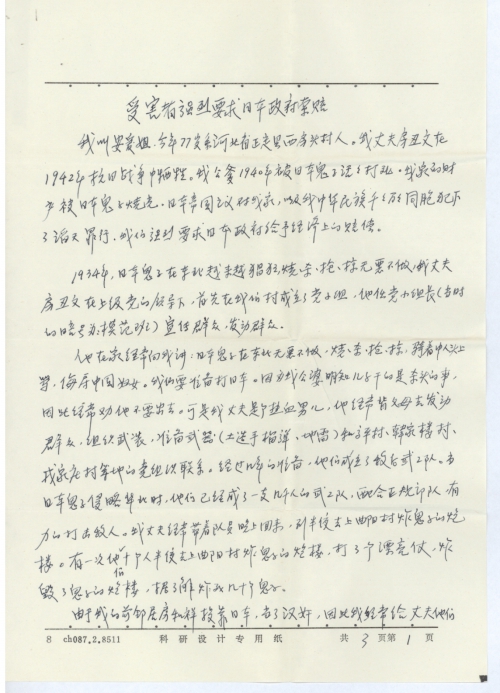 受害者强烈要求日本政府索赔
我叫安爱姐,今年77岁系河北省正定县西房头村人。我丈夫房丑文在
1942年抗日战争中牺牲。我公爹1940年被日本鬼子活活打死。我家的财
产被日本鬼子烧光。日本帝国主义对我家,以及我中华民族千万同胞犯下
了滔天罪行。我们强烈要求日本政府给予经济上的赔偿。
1934年,日本鬼子在东北越来越猖狂,烧、杀、抢、掠无恶不做,我丈夫
房丑文在上级党的领导下,首先在我们村成立了党小组,他任党小组长(当时
的暗号为模范班)宣任群众,发动群众。
他在家经常和我讲:日本鬼子在东北无恶不做,烧、杀、抢、掠,骑着中国人头上
,侮辱中国妇女。我们要准备打日本。因为我公婆明知儿子干的是杀头的事,
因此经常劝他不要出去。可是我丈夫是个热血男儿,他经常背父母去发动
群众,组织武装,准备武器(土造手榴弹、地雷)和平村、韩家楼村、
家庄村等地的党组织联系。经过几年的准备,他们成立了敌后武工队。当
日本鬼子侵略华北时,他们已经成了一支几十人的武工队,配合正规部队,有
力的打击敌人。我丈夫经常带着队员晚上回来,到半夜去上曲阳村炸鬼子的炮
楼。有一次他们十个人半夜去上曲阳村炸鬼子的炮楼,打了个漂亮仗,炸
毁了鬼子的炮楼,据了解炸死几十个鬼子。
由于我的前邻居房和祥投靠日本,当了汉奸,因此我经常给丈夫他们
8 ch087.2.8511 科研设计专用纸 共3页第1页